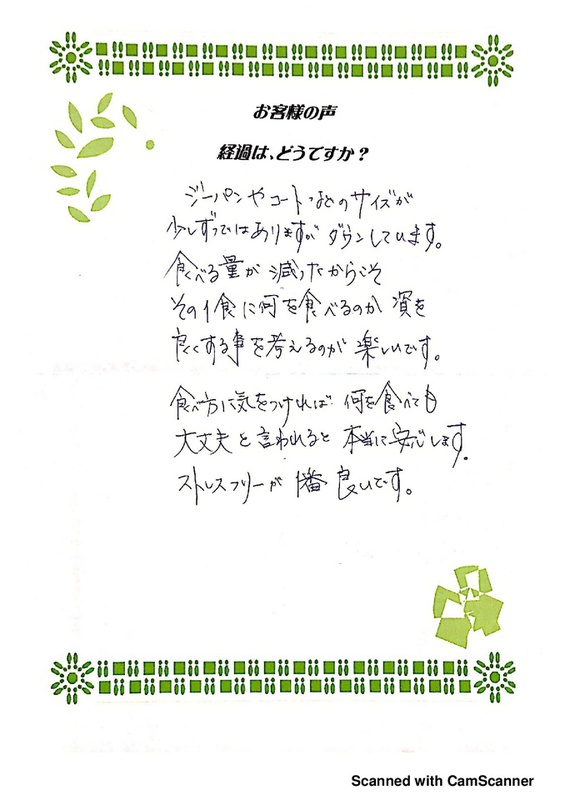 お客様の声
経過は、どうですか？
ジーパンやコートなどのサイズが
少しずつではありますが ダウンしています。
食べる量が 減ったからこそ
その1食に何を食べるのか 質を
良くする事を考えるのが 楽しいです。
食べ方に気をつければ 何を食べても
大丈夫と言われると 本当に安心します。
ストレスフリーが 1番 良いです。
Scanned with CamScanner